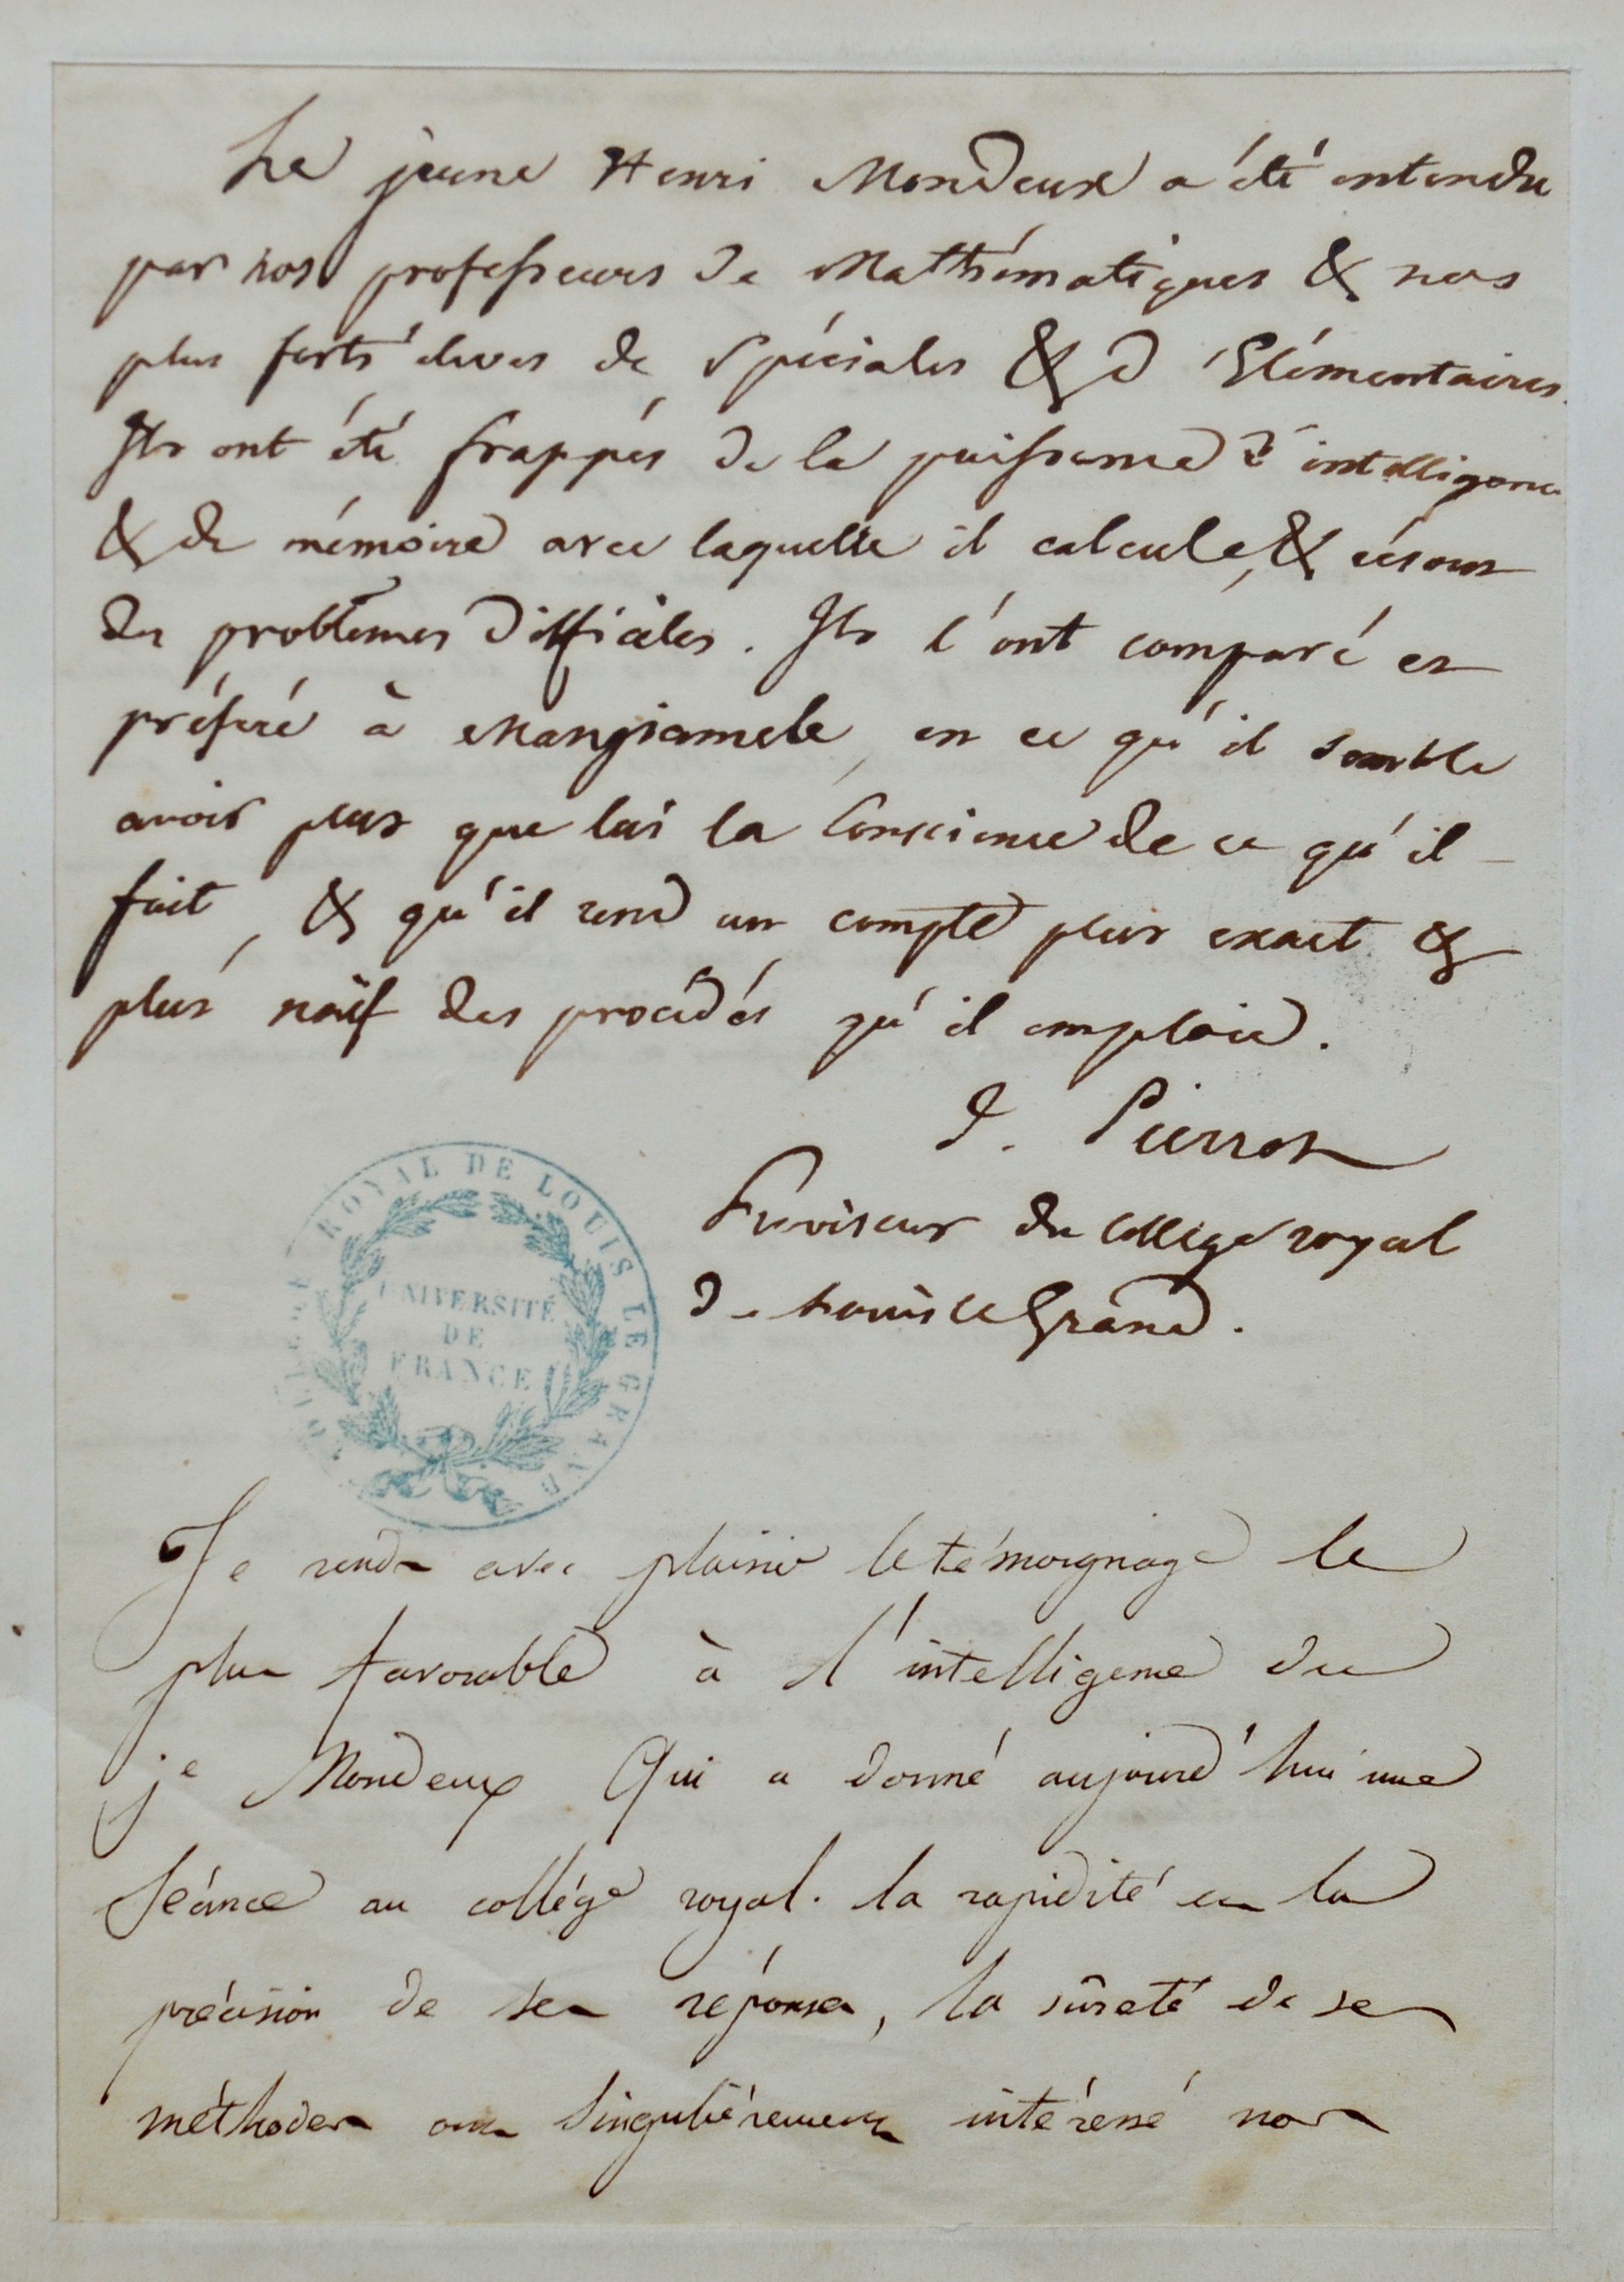 Le jeune Henri Mondeux a été entendu
par nos professeurs de Mathématiques & nos
plus forts élèves de Spéciales & d'Élémentaires.
Ils ont été frappés de la puissance d'intelligence
& de mémoire avec laquelle il calcule, & résout
des problèmes difficiles. Ils l'ont comparé et
préféré à Mangiamele, en ce qu'il semble
avoir plus que lui la Conscience de ce qu'il
fait, & qu'il rend un compte plus exact &
plus naïf des procédés qu'il emploie.
J. Pierrot
Proviseur du Collège royal
de Louis le Grand.
COLLEGE ROYAL DE LOUIS LE GRAND
UNIVERSITÉ
DE
FRANCE
Je rends avec plaisir le témoignage le
plus favorable à l'intelligence du
je Mondeux Qui a donné aujourd'hui une
Séance au collége royal. la rapidité et la
précision de ses réponses, la sûreté de ses
méthodes ont Singulièrement intéressé nos